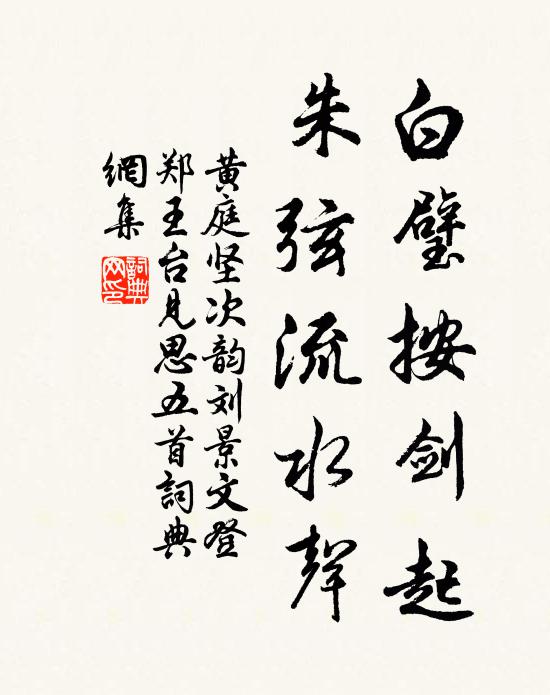 白璧按剑起
朱弦流水声
黄庭坚次韵刘景文登
郑王台见思五首詞典
網集
詞典網印